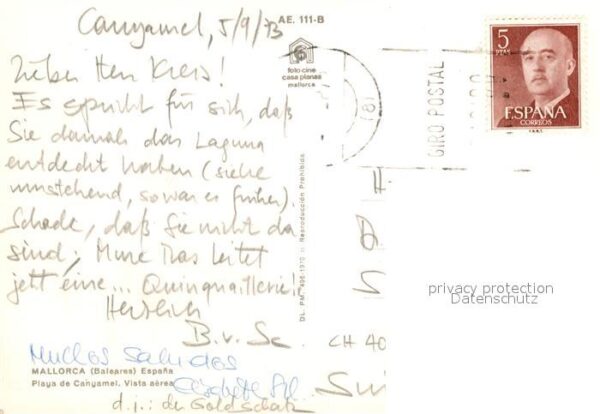 Canyamel, 5/9/73
AE. 111-B
foto-cine
casa planas
mallorca
Lieber Herr Kreis!
Es spricht für sich, daß
Sie damals das Laguna
entdeckt haben (siehe
umstehend, so war es früher).
Schade, daß Sie nicht da
sind; leitet
jetzt eine... Quinquaillerie!
Herzlich
B. v. Sc
Muchos saludos
MALLORCA (Baleares) España
Playa de Canyamel. Vista aérea
d.i.: der Goldschatz
DL. PM. 496-1970 Reproducción Prohibida
GIRO POSTAL
5
PTAS
ESPAÑA
CORREOS
CH 40
privacy protection
Datenschutz